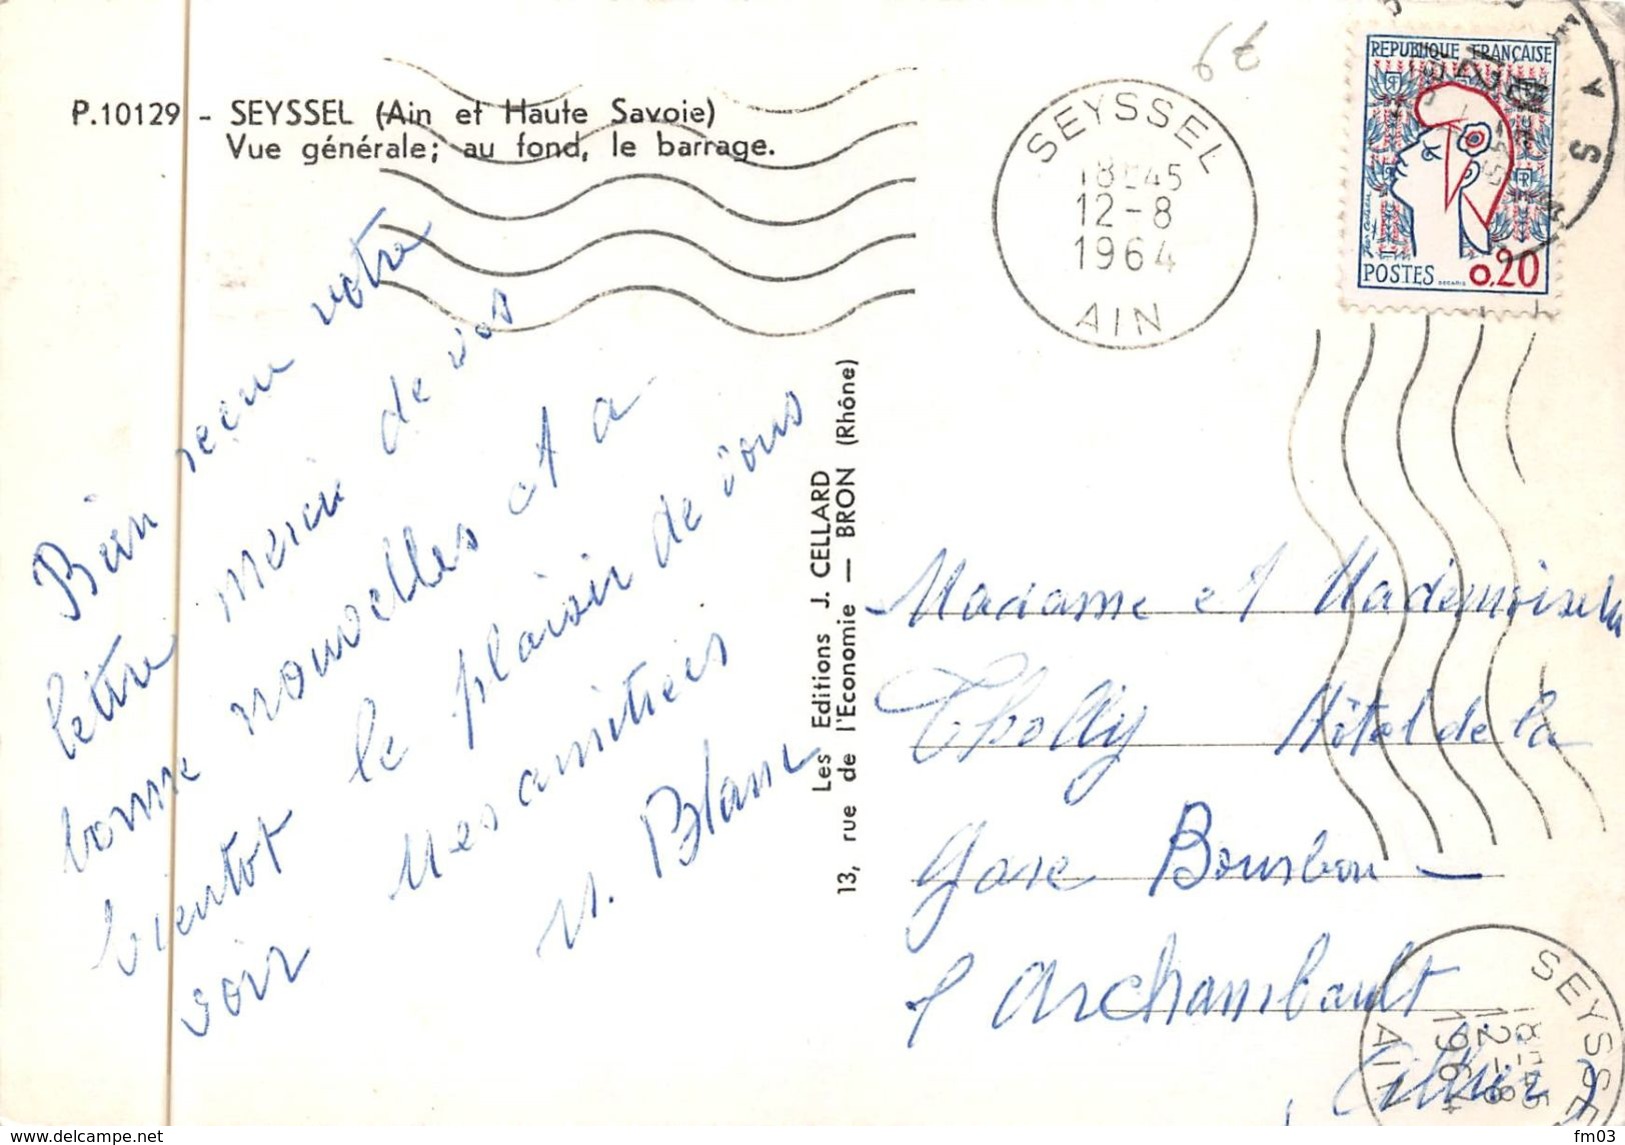 6€
P.10129 - SEYSSEL (Ain et Haute Savoie)
Vue générale; au fond, le barrage.
SEYSSEL
18H45
12-8
1964
AIN
REPUBLIQUE FRANÇAISE
POSTES DECARIS 0,20
Bien reçu votre
lettre merci de vos
bonne nouvelles et a
bientot le plaisir de vous
voir Mes amitiées
M. Blanc
Les Editions J. CELLARD
13, rue de l'Economie — BRON (Rhône)
Madame et Mademoiselle
Tholly Hôtel de la
Gare Bourbon —
l'Archambault
(Allier)
SEYSSEL
18H45
12-8
1964
AIN
delcampe.net
fm03